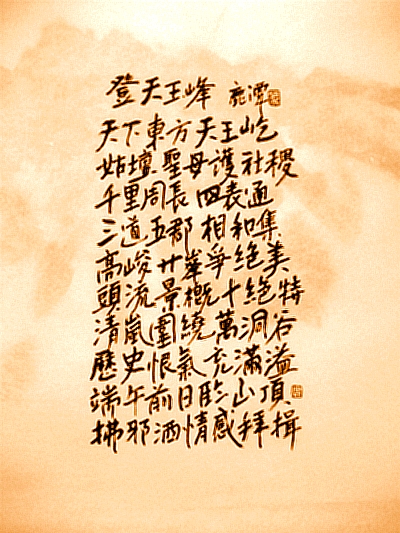 登天王峰 鹿潭
天下東方天王屹
姑壇聖母護社稷
千里周長四表通
三道五郡相和集
高峻廿峯爭絕美
頭流景概十絕特
清嵐圍繞萬洞谷
歷史恨氣充滿溢
端午前日臨山頂
拂邪洒情感拜揖